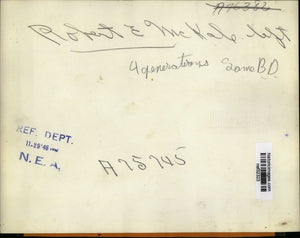 A76386
Robert E McHale left
4 generations Same B.D.
REF. DEPT.
11-29-46
N. E. A.
A75745